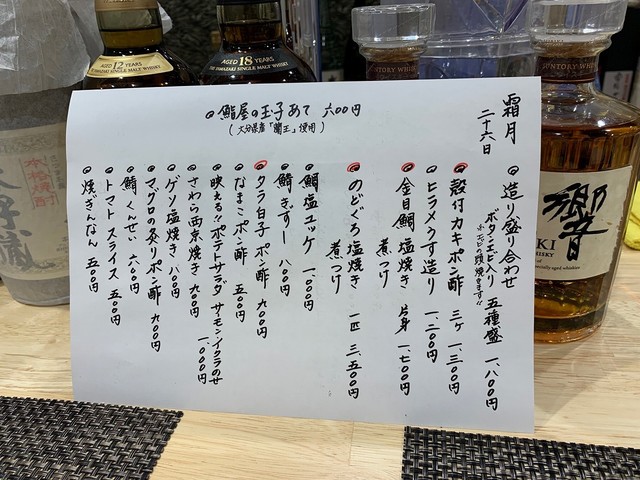 霜月
二十六日
◎鮨屋の玉子あて 六〇〇円
(大分県産「蘭王」使用)
◎造り盛り合わせ
ボタンエビ入り 五種盛 一、八〇〇円
◎殻付カキポン酢 三ヶ 一、三〇〇円
◎ヒラメうす造り 一、二〇〇円
◎金目鯛 塩焼き 片身 一、七〇〇円
煮つけ
◎のどぐろ塩焼き 一匹 三、五〇〇円
煮つけ
◎鯛塩ユッケ 一、〇〇〇円
◎鯖きずし 八〇〇円
◎タラ白子ポン酢 九〇〇円
◎なまこポン酢 五〇〇円
◎映える!!ポテトサラダ サーモンイクラのせ
一、〇〇〇円
◎さわら西京焼き 九〇〇円
◎ゲソ塩焼き 八〇〇円
◎マグロの炙りポン酢 九〇〇円
◎鯖くんせい 六〇〇円
◎トマトスライス 五〇〇円
◎焼きぎんなん 五〇〇円
AGED 12 YEARS
SINGLE MALT WHISKY
AGED 18 YEARS
THE YAMAZAKI SINGLE MALT WHISKY
SUNTORY WHISKY
SUNTORY WHISKY
響
KI
WHISKY
本格焼酎